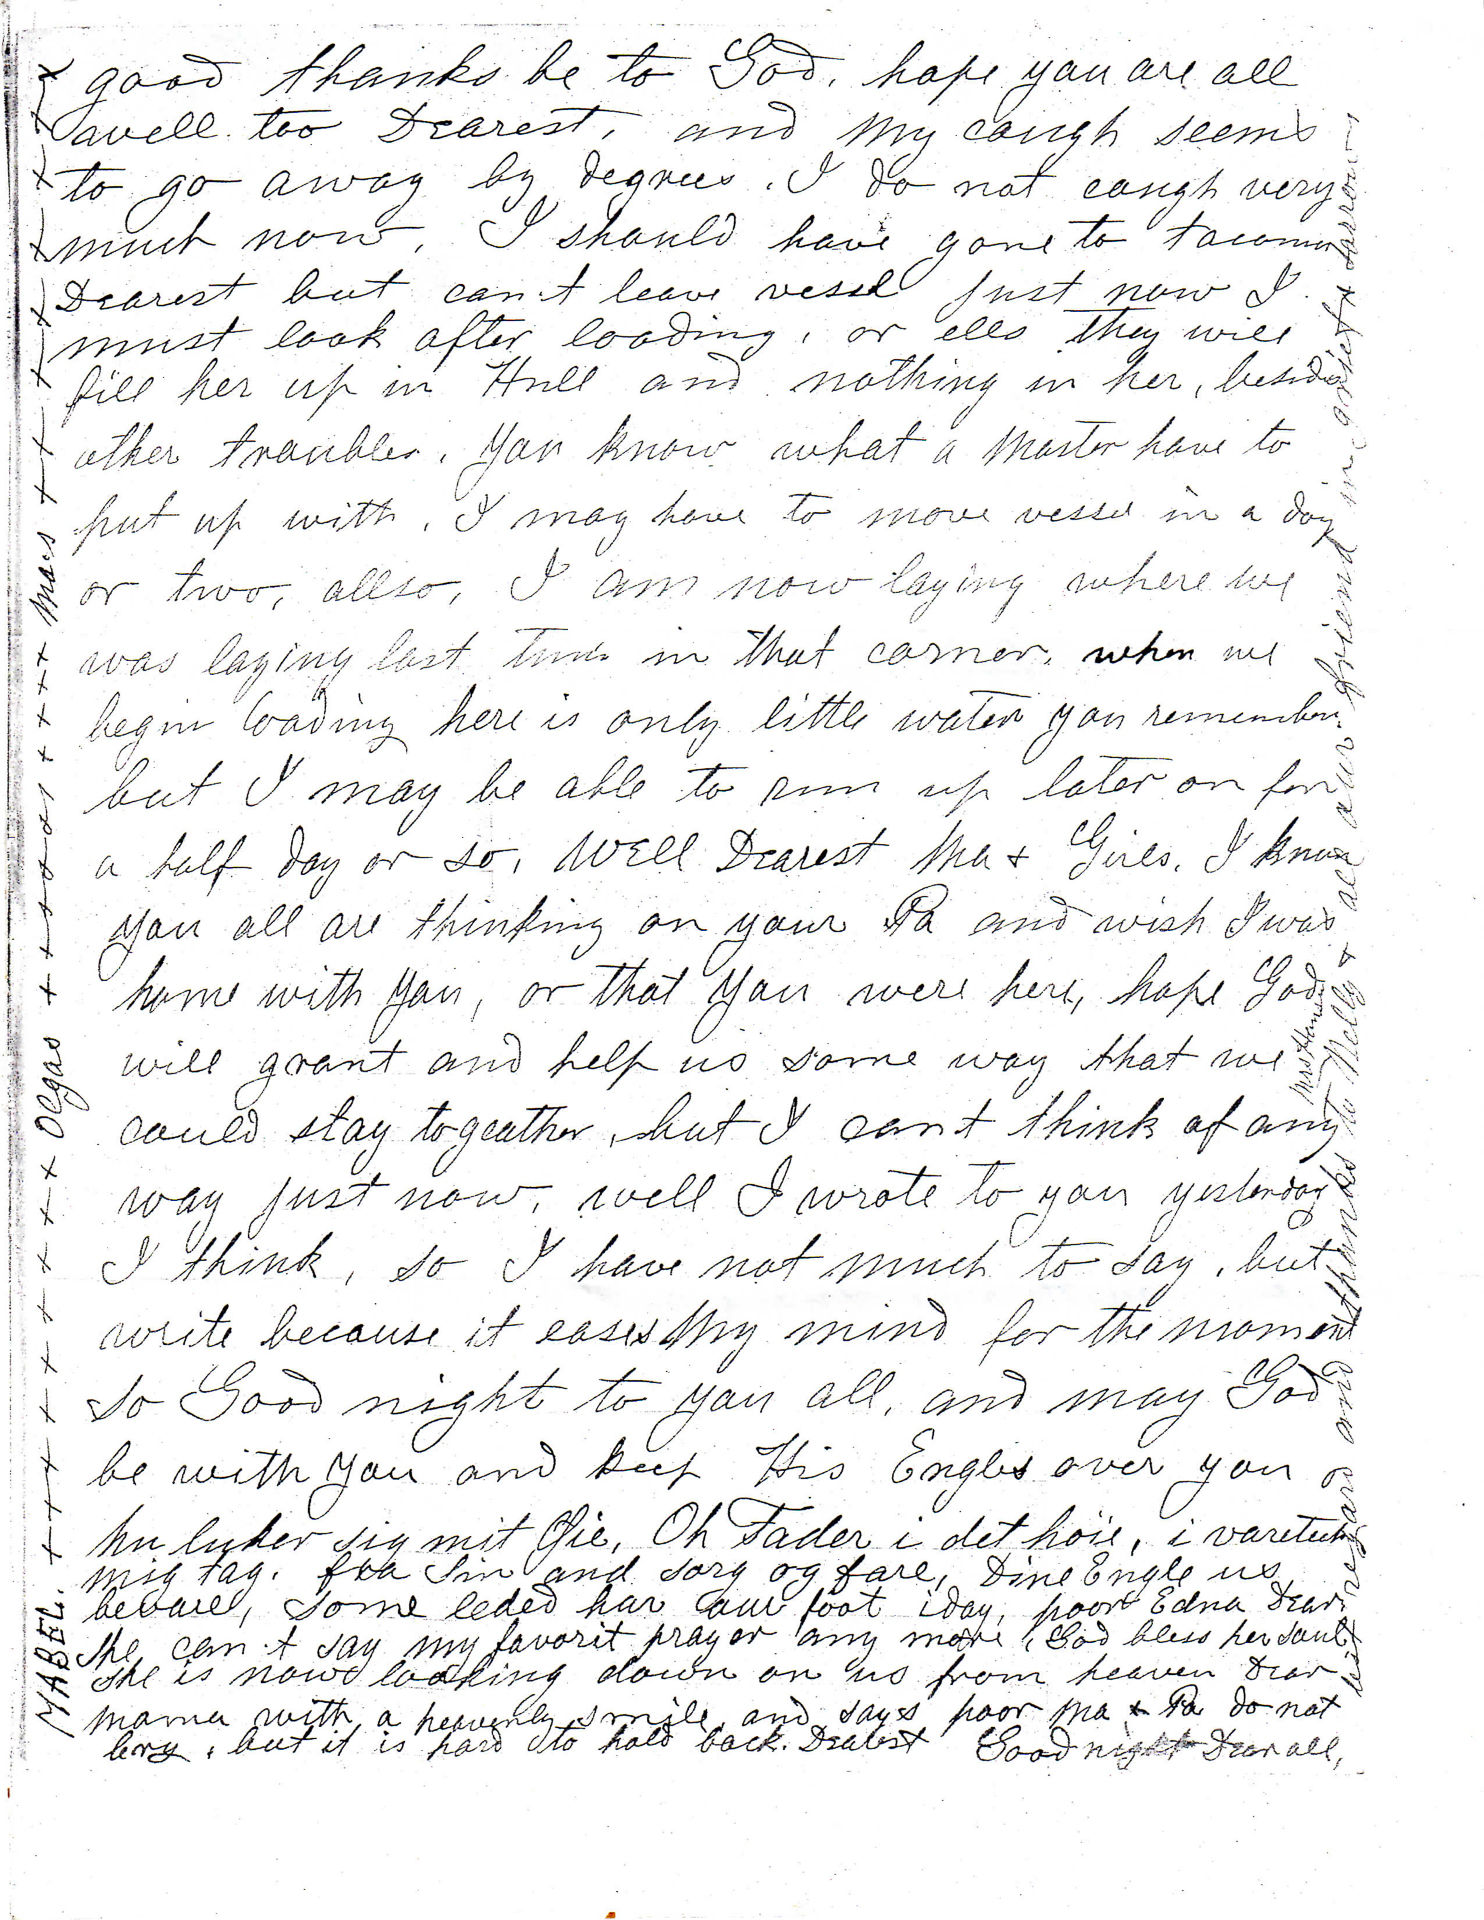 good thanks be to God, hope you are all
well too Dearest, and My cough seems
to go away by degrees. I do not caugh very
much now, I should have gone to tacoma
Dearest but can't leave vessel just now I
must look after loading, or ells they will
fill her up in Hull and nothing in her, beside
other troubles, You know what a Master have to
put up with, I may have to move vessel in a day
or two, allso, I am now laying where we
was laying last time in that corner, when we
begin loading here is only little water you remember
but I may be able to run up later on for
a half day or so, WEll Dearest Ma & Girls, I know
you all are thinking on your Pa and wish I was
home with You, or that You were here, hope God
will grant and help us some way that we
could stay togeather, but I can't think of any
way just now, well I wrote to you yesterday
I think, so I have not much to say, but
write because it eases My mind for the moment
so Good night to you all, and may God
be with you and keep His Engles over you
nu luker sig mit Öie, Oh Fader i det höie, i varetecht
mig tag. fra Sin and sorg og fare, Dine Engle us
bevare, some leded har our foot iday, poor Edna Dear
she can't say my favorit prayer any more, God bless her Soul
she is now looking down on us from heaven Dear
mama with a heavenly smile and says poor Ma & Pa do not
cry, but it is hard to hold back. Dearest Good night Dear all,
MABEL. x x x x x x x x x Olgas x x x x x x x x x Maes x x x x x x x x
kind regards and thanks to Nelly & all our friend in grief & sorrow
Mrs Hans